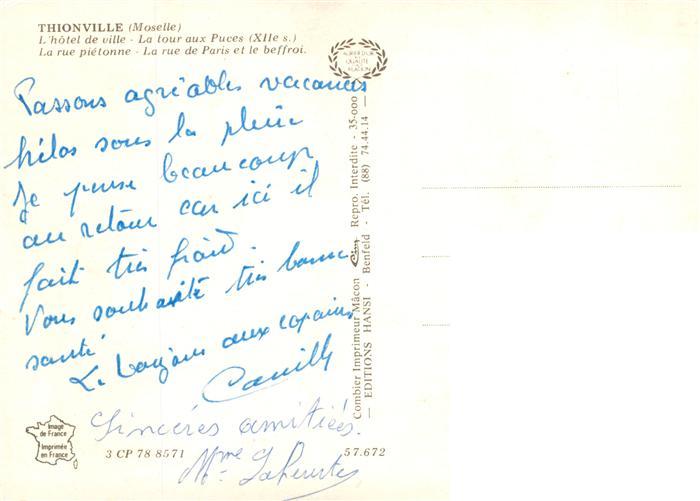 THIONVILLE (Moselle)
L'hôtel de ville - La tour aux Puces (XIIe s.)
La rue piétonne - La rue de Paris et le beffroi.
Passons agréables vacances
hélas sous la pluie
Je pense beaucoup
au retour car ici il
fait très froid.
Vous souhaite très bonne
santé
Le bonjour aux copains
Camille
Sincères amitiées.
Mme
Combier Imprimeur Mâcon Cim Repro. Interdite - 35-000
EDITIONS HANSI - Benfeld - Tél. (88) 74.44.14
QUALITE
Image
de France
Imprimée
en France
3 CP 78 8571
57.672